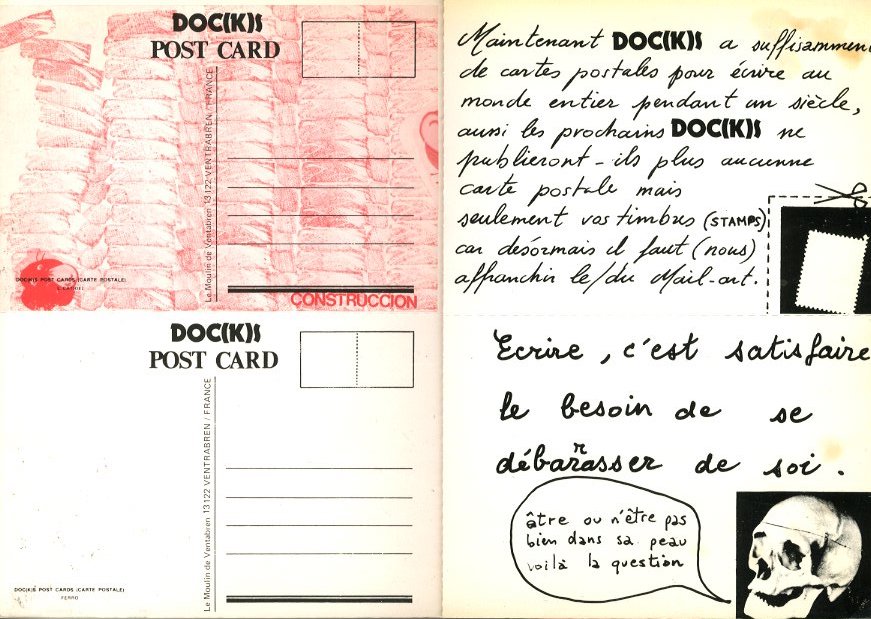 DOC(K)S
POST CARD
Le Moulin de Ventabren 13122 VENTRABREN / FRANCE
DOC(K)S POST CARDS (CARTE POSTALE)
CONSTRUCCION
DOC(K)S
POST CARD
Le Moulin de Ventabren 13122 VENTRABREN / FRANCE
DOC(K)S POST CARDS (CARTE POSTALE)
FERRO
Maintenant DOC(K)S a suffisamment
de cartes postales pour écrire au
monde entier pendant un siècle,
aussi les prochains DOC(K)S ne
publieront-ils plus aucunne
carte postale mais
seulement vos timbres (STAMPS)
car désormais il faut (nous)
affranchir le/du Mail-art.
Ecrire, c'est satisfaire
le besoin de se
débarrasser de soi.
âtre ou n'être pas
bien dans sa peau
voilà la question